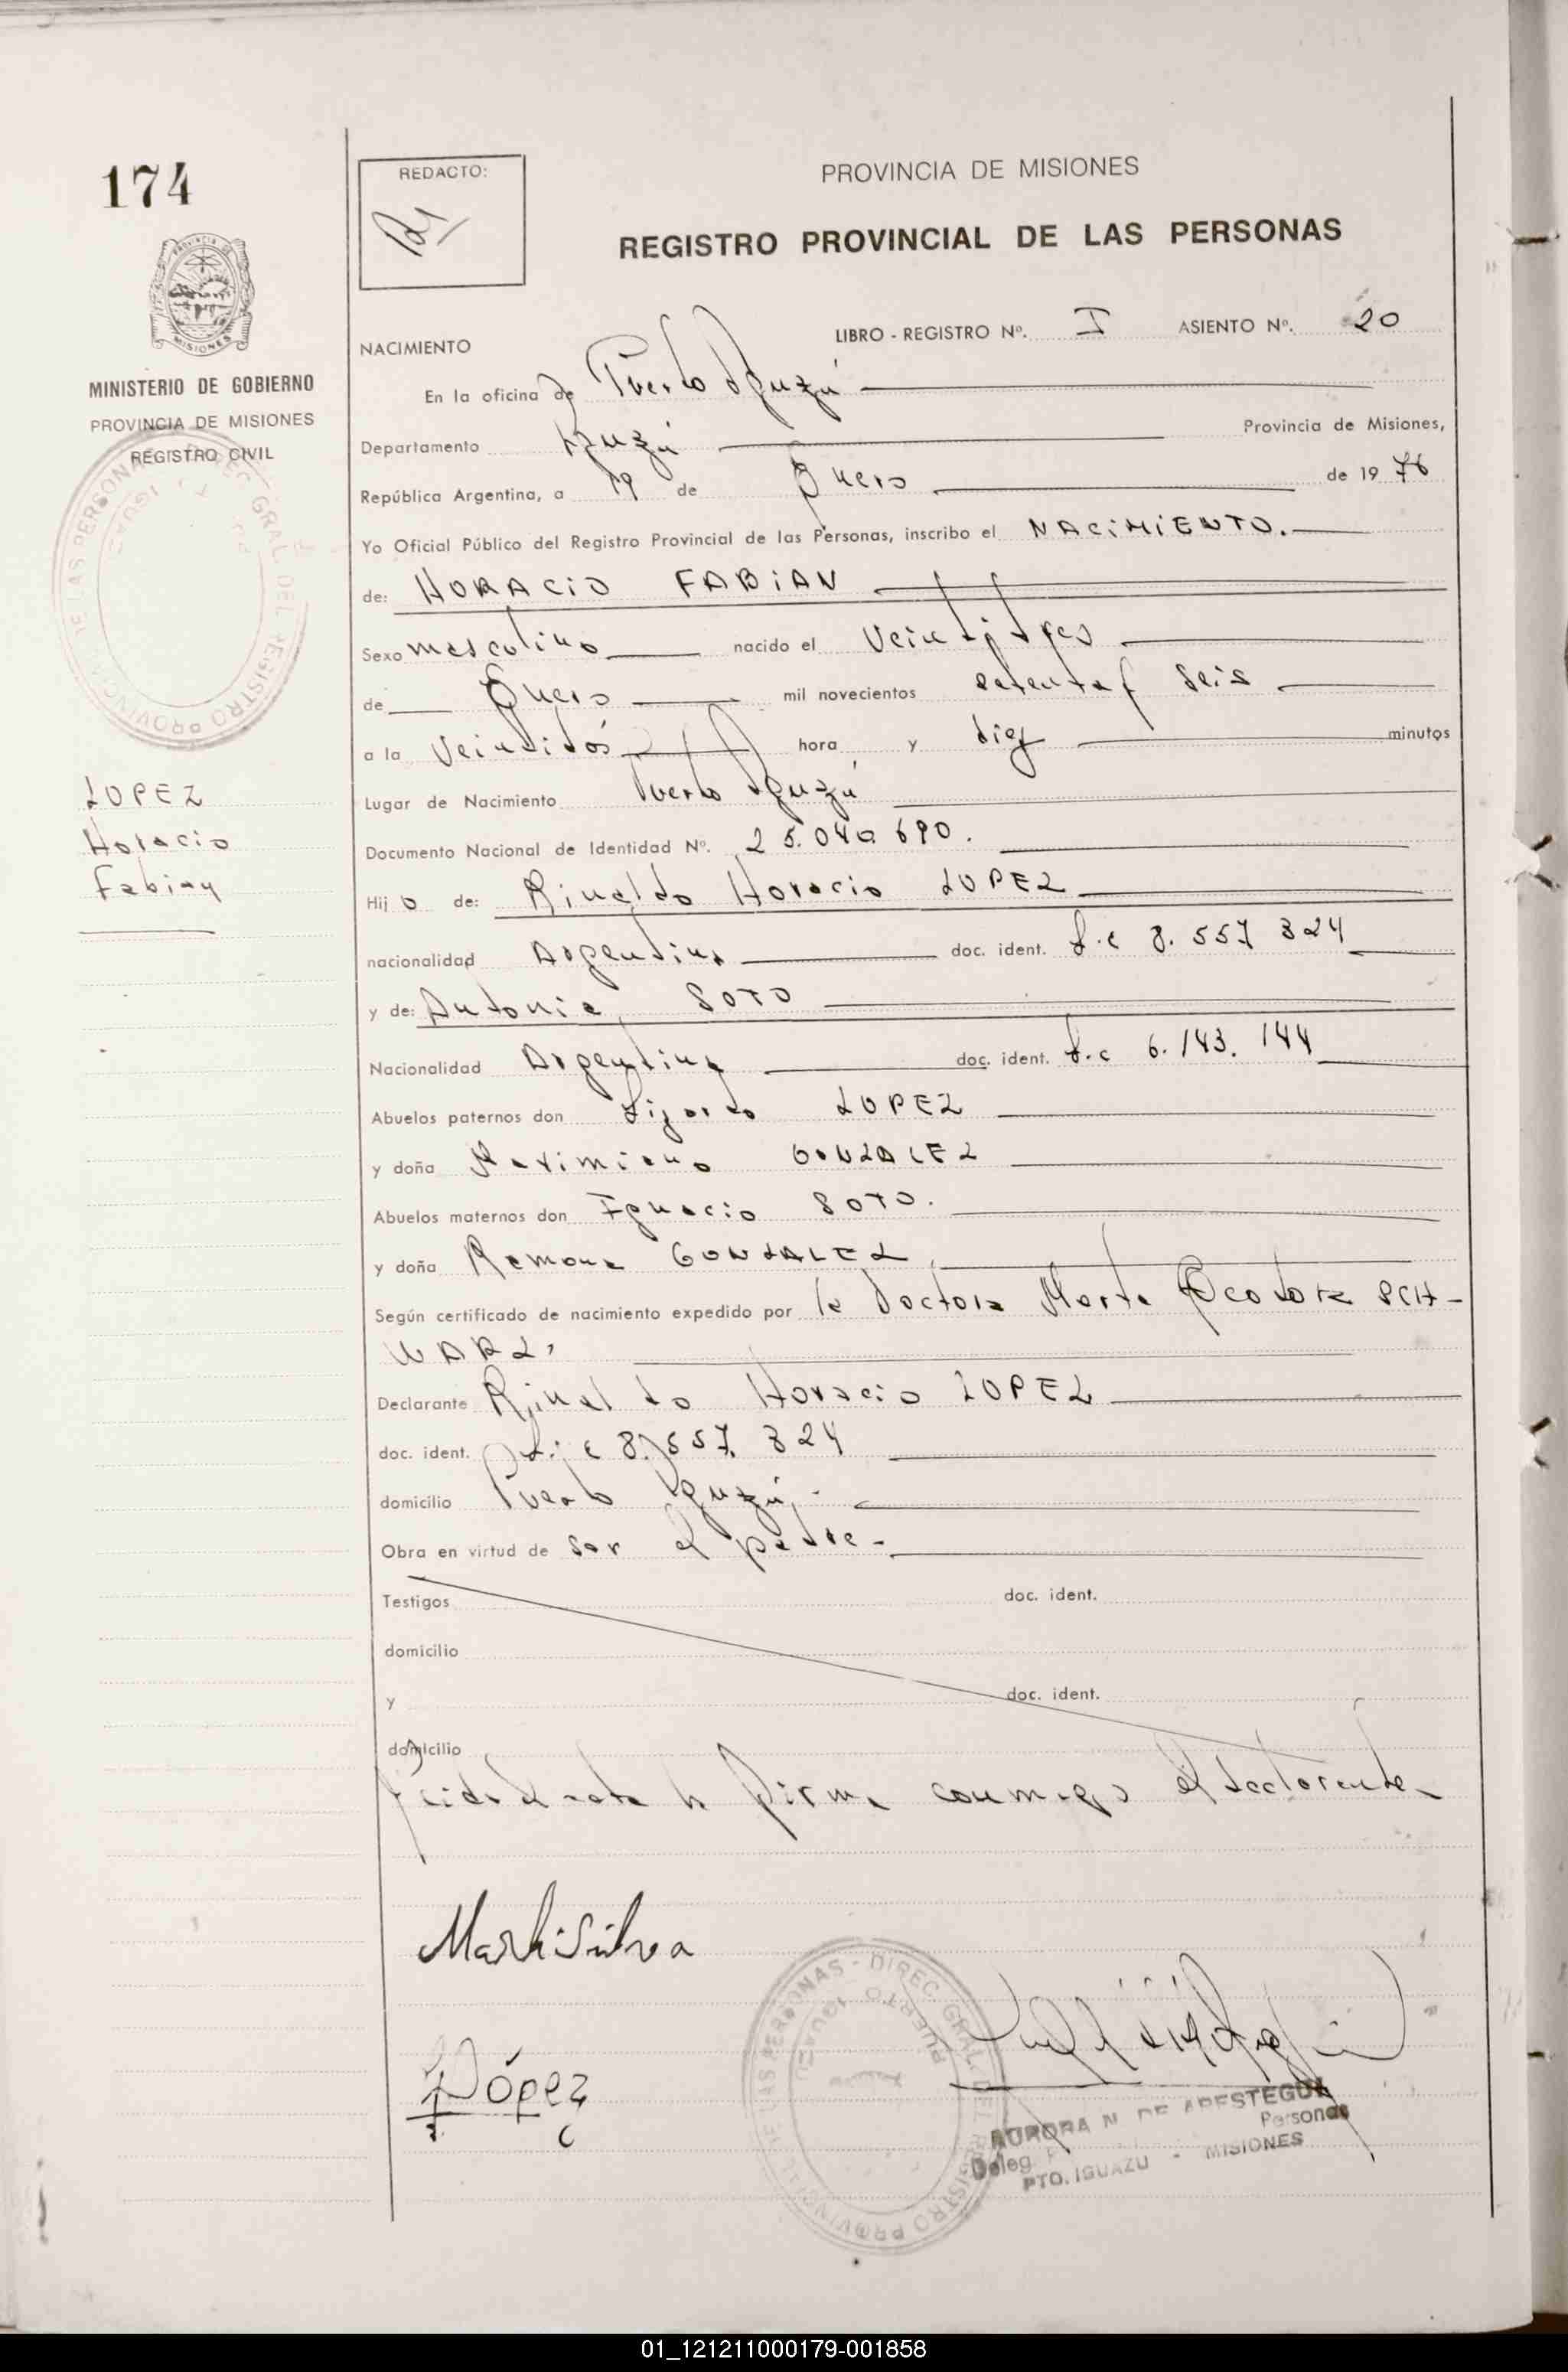 174
REDACTO:
PROVINCIA DE MISIONES
REGISTRO PROVINCIAL DE LAS PERSONAS
MISIONES
MINISTERIO DE GOBIERNO
PROVINCIA DE MISIONES
REGISTRO CIVIL
LOPEZ
Horacio
Fabian
NACIMIENTO
LIBRO - REGISTRO Nº. I ASIENTO Nº. 20
En la oficina de Puerto Iguazú
Departamento Iguazú Provincia de Misiones,
República Argentina, a 29 de Enero de 19 76
Yo Oficial Público del Registro Provincial de las Personas, inscribo el NACIMIENTO.
de: HORACIO FABIAN
Sexo masculino nacido el veintitres
de Enero mil novecientos setenta y seis
a la veintidós hora y diez minutos
Lugar de Nacimiento Puerto Iguazú
Documento Nacional de Identidad Nº. 25.040.690.
Hijo de: Rinaldo Horacio LOPEZ
nacionalidad Argentina doc. ident. L.E 8.557.324
y de: Antonia SOTO
Nacionalidad Argentina doc. ident. L.C 6.143.144
Abuelos paternos don LOPEZ
y doña GONZALEZ
Abuelos maternos don Ignacio SOTO.
y doña Ramona GONZALEZ
Según certificado de nacimiento expedido por la Doctora Marta SCH-
WARZ.
Declarante Rinaldo Horacio LOPEZ
doc. ident. L.E 8.557.324
domicilio Puerto Iguazú.-
Obra en virtud de ser el padre-
Testigos doc. ident.
domicilio
y doc. ident.
domicilio
Leida el acta la firma conmigo el declarante
López
DIREC. GRAL. DEL REGISTRO PROVINCIAL DE LAS PERSONAS
PUERTO IGUAZU
AURORA N. DE APESTEGUI
Deleg. Personas
PTO. IGUAZU - MISIONES
01_121211000179-001858